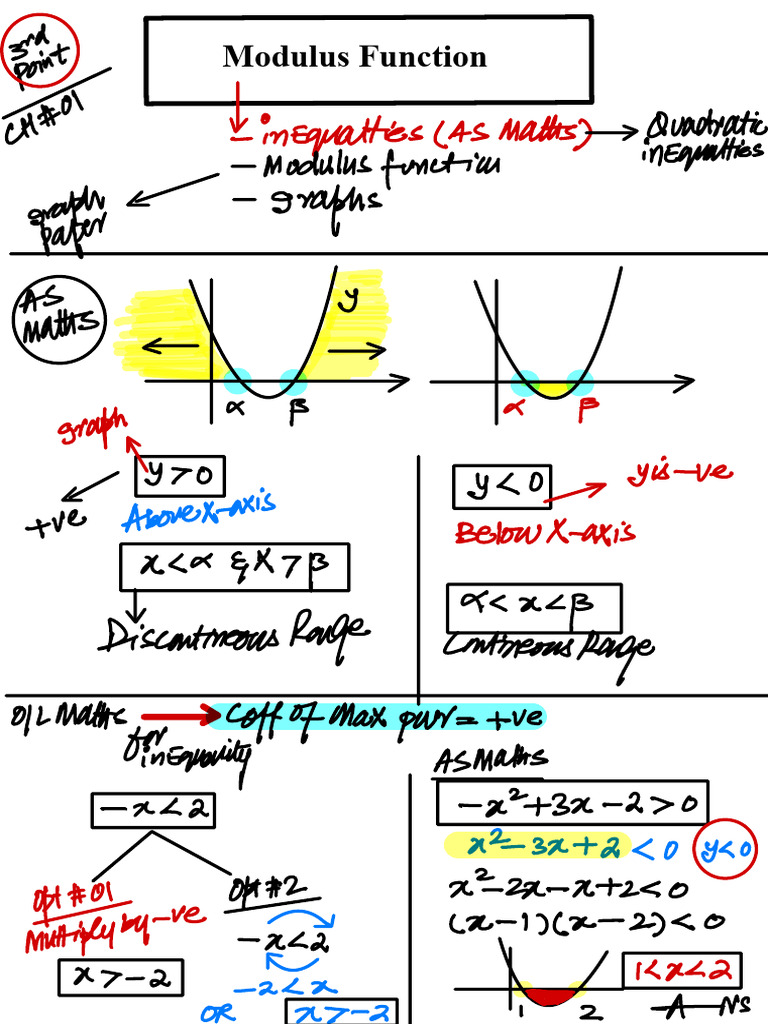 3rd
Point
CH # 01
Modulus Function
– inEqualties (AS Maths) → Quadratic
inEqualties
– Modulus function
– graphs
graph
Paper
AS
Maths
y
α β
α β
graph
y > 0
+ve
Above X-axis
x < α & x > β
Discontineous Range
y < 0
y is -ve
Below X-axis
α < x < β
Contineous Range
O/L Maths → Coff of Max pwr = +ve
for
inEquality
– x < 2
opt # 01
Multiply by -ve
x > – 2
opt # 2
– x < 2
– 2 < x
OR x > – 2
AS Maths
– x² + 3x – 2 > 0
x² – 3x + 2 < 0 y < 0
x² – 2x – x + 2 < 0
(x – 1)(x – 2) < 0
1 2
1 < x < 2